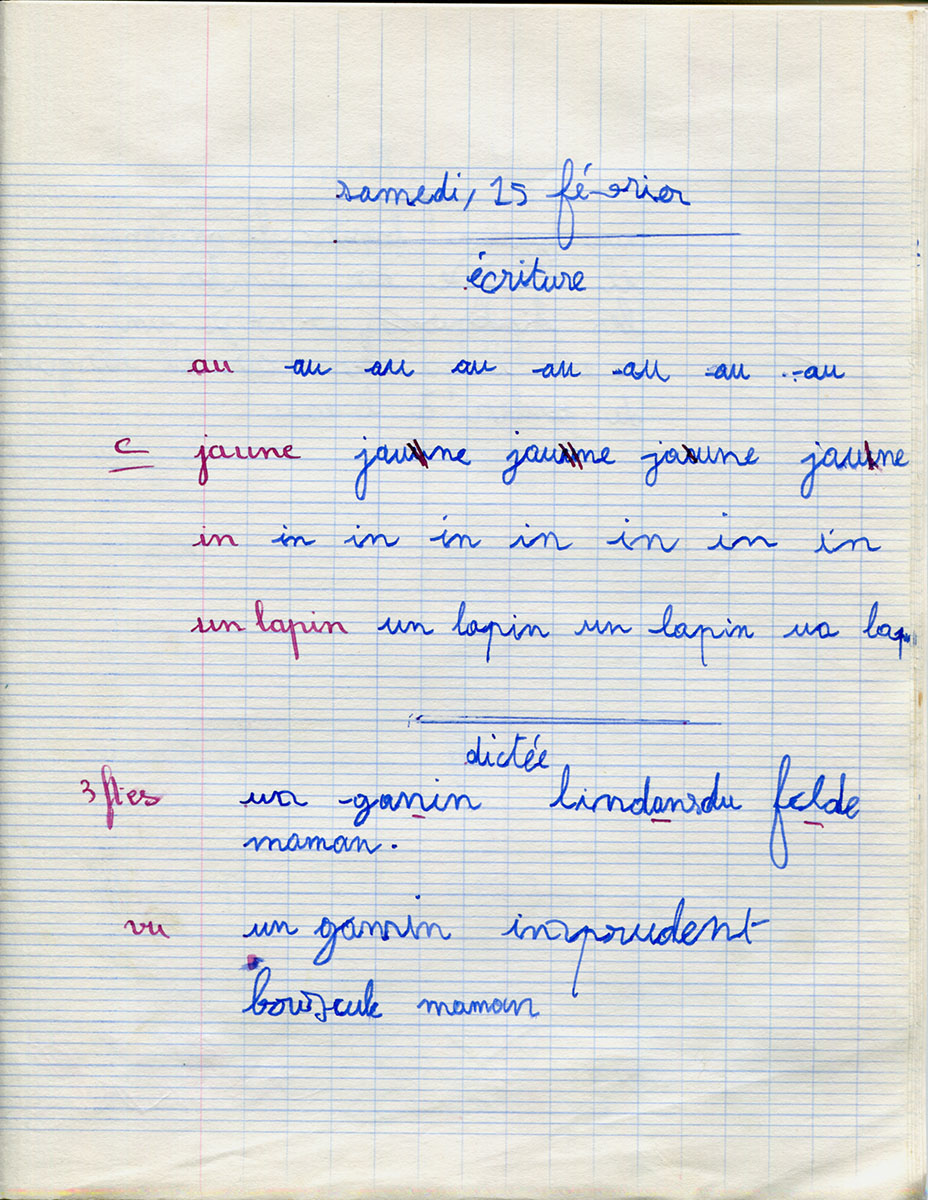 samedi, 15 février
écriture
au au au au au au au au
c jaune jaune jaune jaune jaune
in in in in in in in in
un lapin un lapin un lapin un lap
dictée
3 ftes un ganin lindansdu felde
maman.
vu un gamin imprudent
bouscule maman